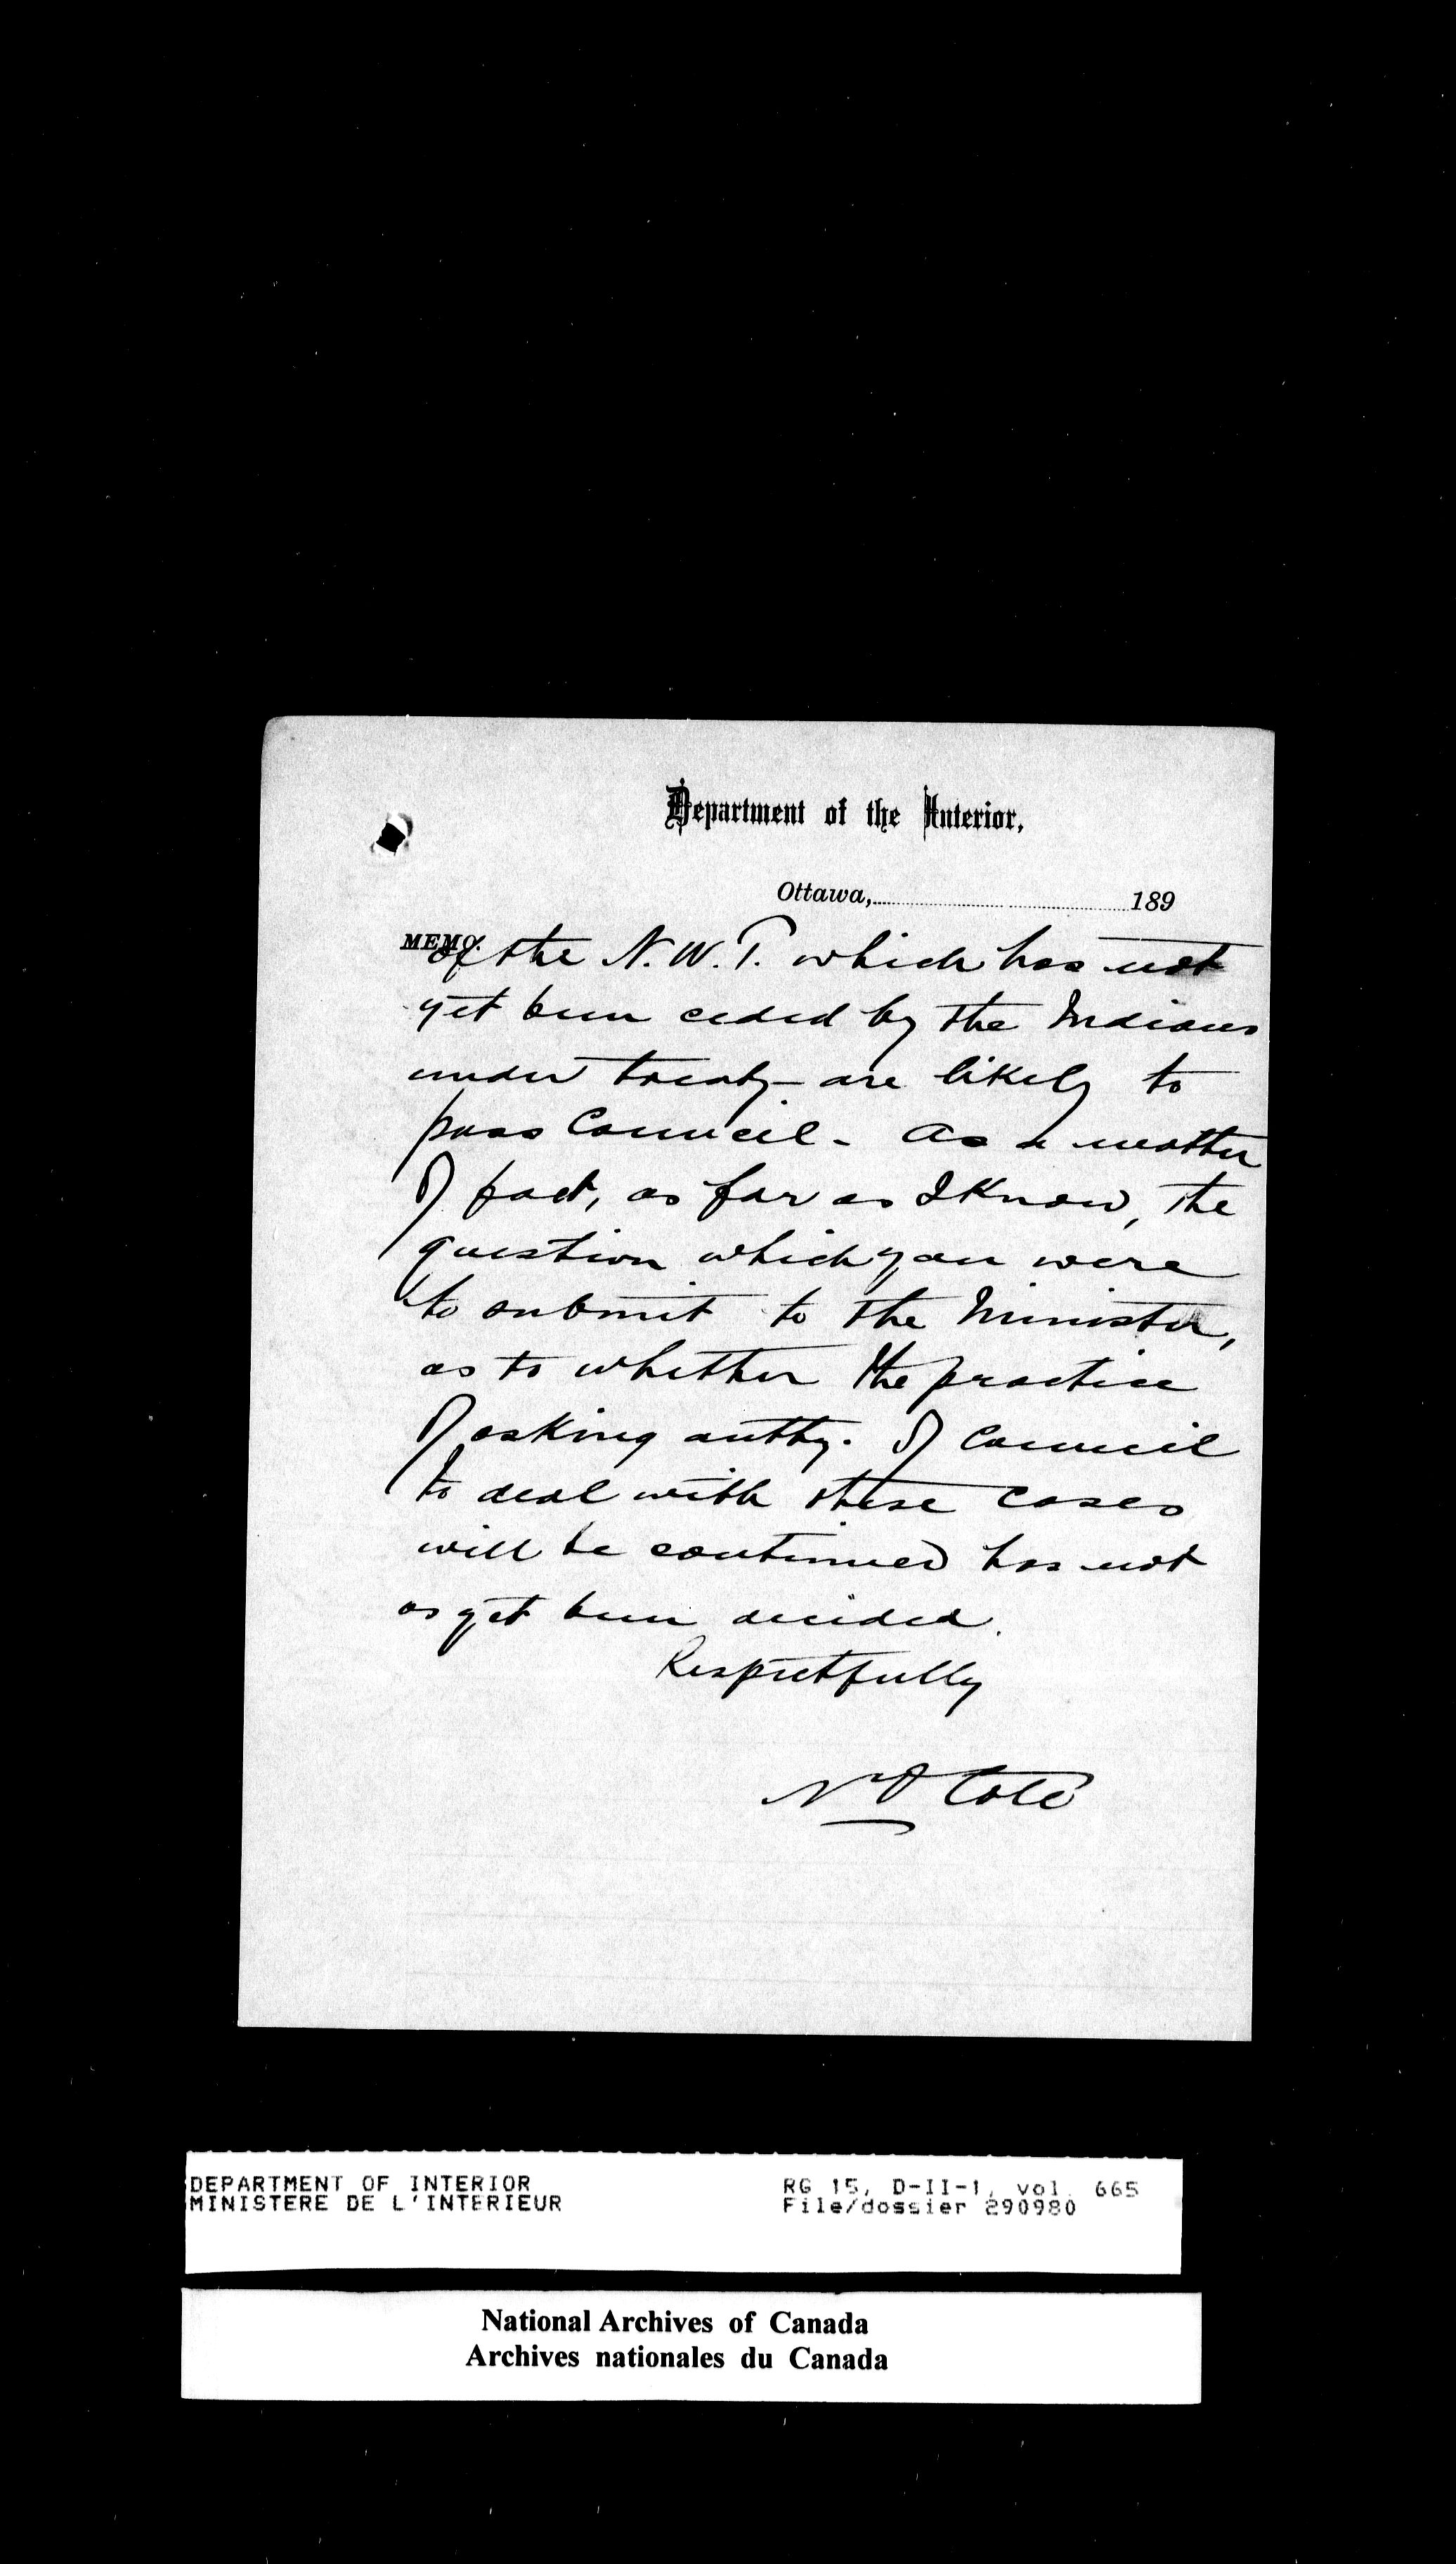 Department of the Interior,
Ottawa, 189
MEMO.
of the N.W.T. which has not
yet been ceded by the Indians
under treaty are likely to
pass Council. As a matter
of fact, as far as I know, the
question which you were
to submit to the Minister,
as to whether the practice
of asking authy. of Council
to deal with these cases
will be continued has not
as yet been decided.
Respectfully
N O Coté
DEPARTMENT OF INTERIOR
MINISTERE DE L'INTERIEUR
RG 15, D-II-1, vol. 665
File/dossier 290980
National Archives of Canada
Archives nationales du Canada